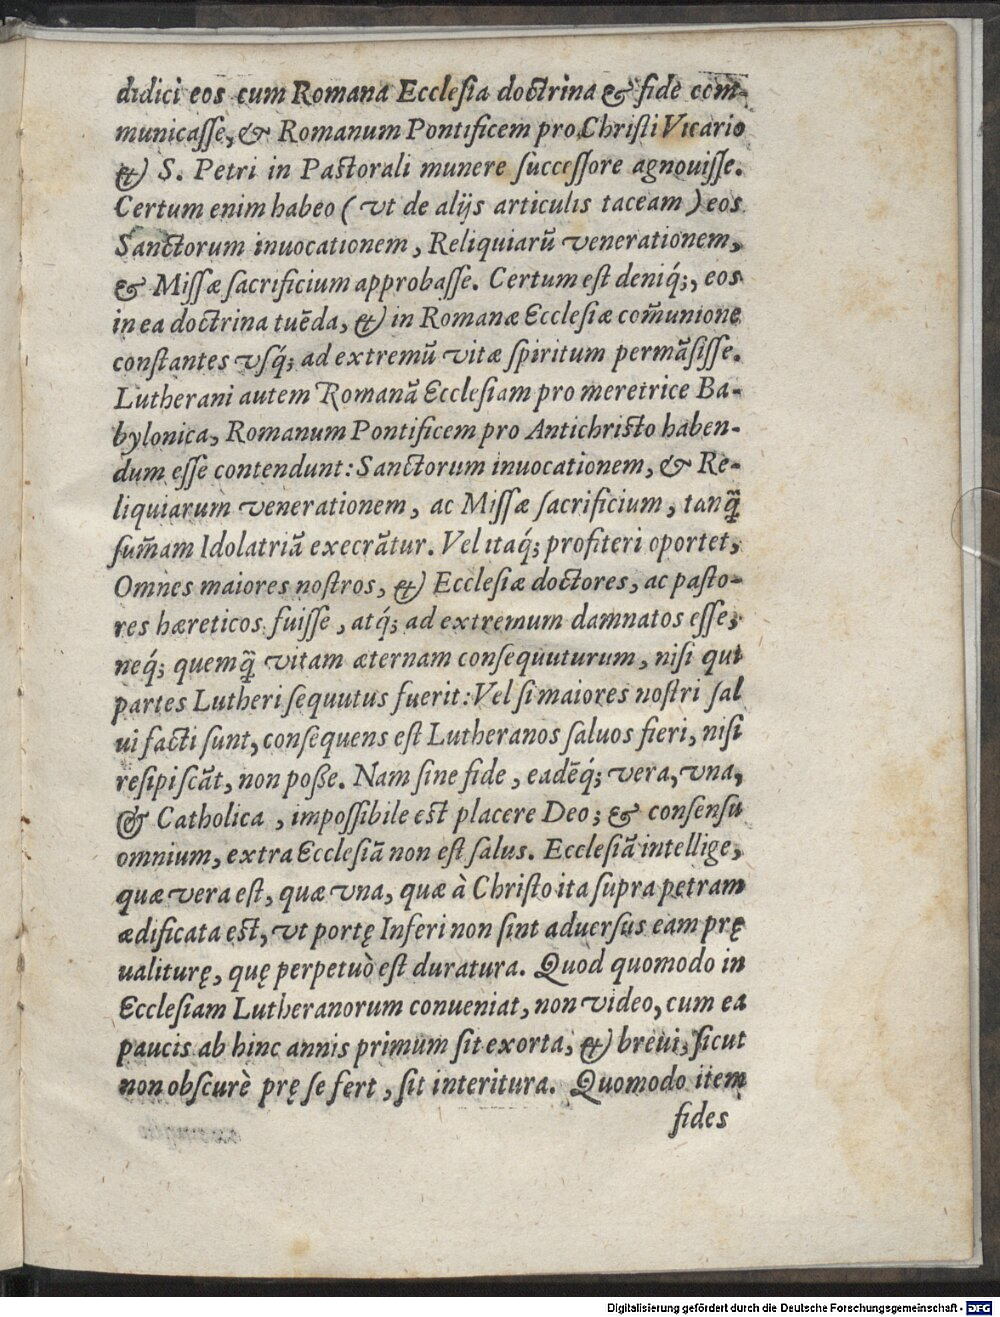 didici eos cum Romana Ecclesia doctrina & fidē com-
municaſſe, & Romanum Pontificem pro Chriſti Vicario
& S. Petri in Paſtorali munere ſucceſſore agnouiſſe.
Certum enim habeo ( vt de alijs articulis taceam ) eos
Sanctorum inuocationem, Reliquiarũ venerationem,
& Miſſæ ſacrificium approbaſſe. Certum eſt deniq́;, eos
in ea doctrina tuẽda, & in Romanæ Eccleſiæ com̃unione
conſtantes vſq́; ad extremũ vitæ ſpiritum permãſiſſe.
Lutherani autem Romanã Eccleſiam pro meretrice Ba-
bylonica, Romanum Pontificem pro Antichriſto haben-
dum eſſe contendunt: Sanctorum inuocationem, & Re-
liquiarum venerationem, ac Miſſæ ſacrificium, tanq̃
ſum̃am Idolatriã execrãtur. Vel itaq́; profiteri oportet,
Omnes maiores noſtros, & Eccleſiæ doctores, ac paſto-
res hæreticos fuiſſe, atq́; ad extremum damnatos eſſe,
neq́; quemq̃ vitam æternam conſequuturum, niſi qui
partes Lutheri ſequutus fuerit: Vel ſi maiores noſtri ſal
ui facti ſunt, conſequens eſt Lutheranos ſaluos fieri, niſi
reſipiſcãt, non poße. Nam ſine fide, eadẽq́; vera, vna,
& Catholica, impoſſibile eſt placere Deo; & conſenſu
omnium, extra Eccleſiã non eſt ſalus. Eccleſiã intellige,
quæ vera eſt, quæ vna, quæ à Chriſto ita ſupra petram
ædificata eſt, vt portę Inferi non ſint aduerſus eam prę
ualiturę, quę perpetuò eſt duratura. Quod quomodo in
Eccleſiam Lutheranorum conueniat, non video, cum ea
paucis ab hinc annis primùm ſit exorta, & breui, ſicut
non obſcurè prę ſe fert, ſit interitura. Quomodo item
fides
Digitalisierung gefördert durch die Deutsche Forschungsgemeinschaft - DFG